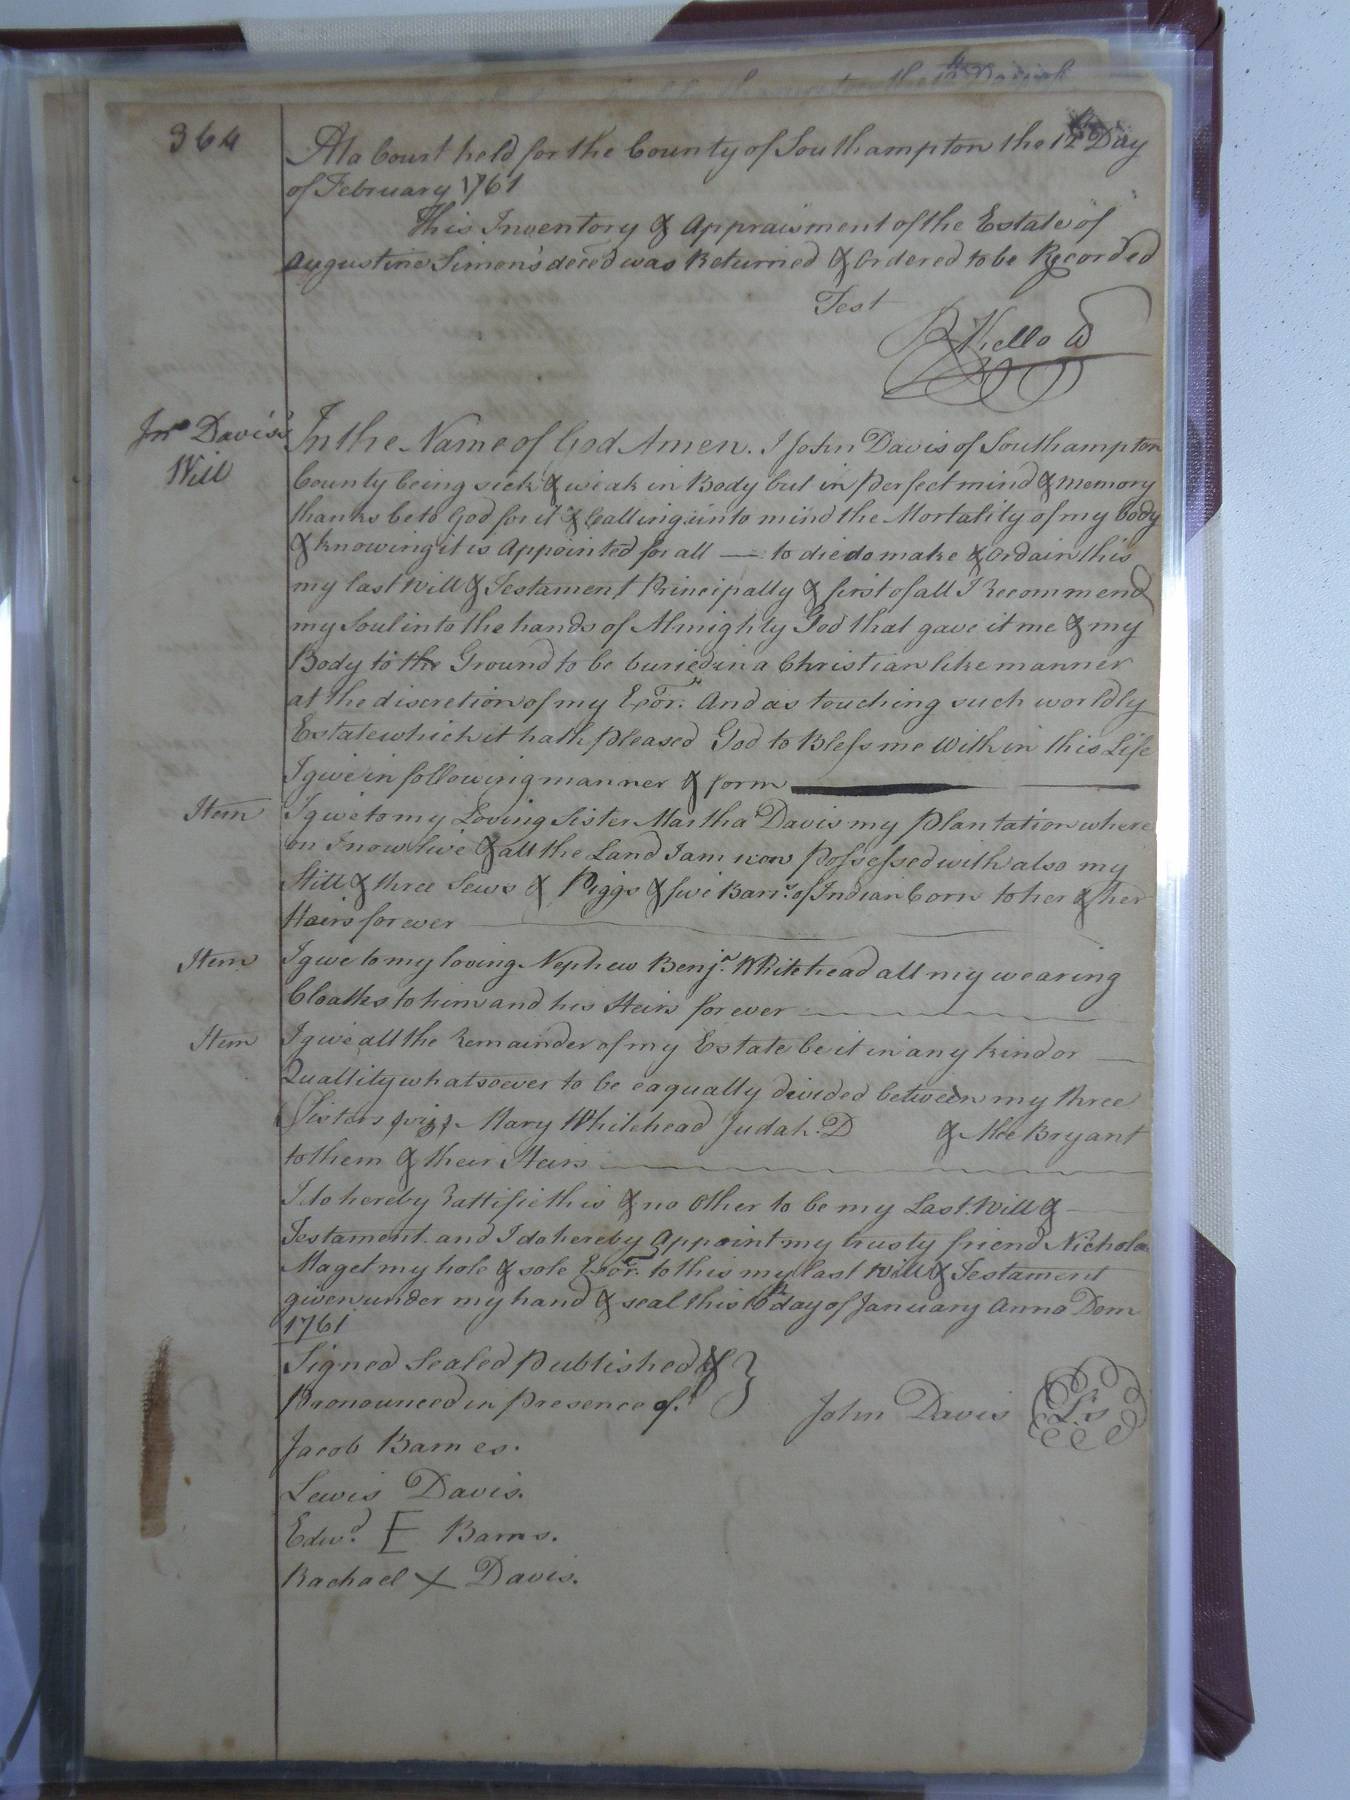 364
At a Court held for the County of Southampton the 12th Day
of February 1761
This Inventory & Appraisment of the Estate of
Augustine Simon's deced was Returned & Ordered to be Recorded
Test
R Kello
Jno. Davis's
Will
In the Name of God Amen. I John Davis of Southampton
County being sick & weak in Body but in perfect mind & memory
thanks be to God for it & Calling unto mind the Mortality of my body
& knowing it is Appointed for all — to die do make & Ordain this
my last Will & Testament Principally & first of all I Recommend
my Soul into the hands of Almighty God that gave it me & my
Body to the Ground to be buried in a Christian like manner
at the discretion of my Exor. And as touching such worldly
Estate which it hath pleased God to Bless me With in this Life
I give in following manner & form
Item I give to my Loving Sister Martha Davis my Plantation where
on I now live & all the Land I am now possessed with also my
Still & three Sews & Piggs & five Barrs. of Indian Corn to her & her
Heirs forever
Item I give to my loving Nephew Benja. Whitehead all my wearing
Cloaths to him and his Heirs for ever
Item I give all the Remainder of my Estate be it in any kind or
Quallity whatsoever to be eaqually divided between my three
Sisters viz. Mary Whitehead Judah. D & Bryant
to them & their Heirs
I do hereby Rattifie this & no Other to be my Last Will &
Testament and I do hereby Appoint my trusty friend Nicholas
Maget my hole & sole Exor. to this my last Will & Testament
given under my hand & seal this day of January Anno Dom
1761
Signed Sealed Published &
Pronounced in presence of. John Davis Ls
Jacob Barnes.
Lewis Davis.
Edwd. E Barns.
Rachael X Davis.